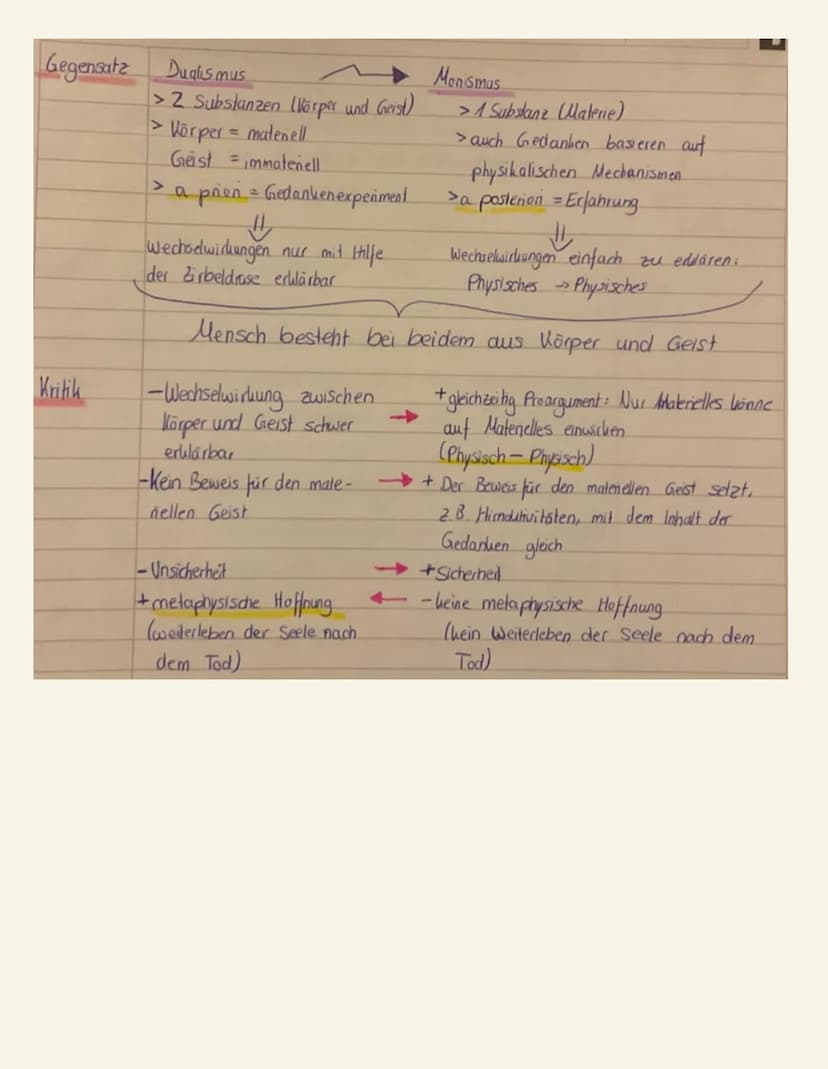 Gegensatz
Dualismus
> 2 Substanzen (Körper und Geist)
> Körper = materiell
Geist = immateriell
> a priori = Gedankenexperiment
⇓
Wechselwirkungen nur mit Hilfe
der Zirbeldrüse erklärbar
Monismus
> 1 Substanz (Materie)
> auch Gedanken basieren auf
physikalischen Mechanismen
> a posteriori = Erfahrung
⇓
Wechselwirkungen einfach zu erklären:
Physisches → Physisches
Mensch besteht bei beidem aus Körper und Geist
Kritik
- Wechselwirkung zwischen
Körper und Geist schwer
erklärbar
- Kein Beweis für den mate-
riellen Geist
- Unsicherheit
+ metaphysische Hoffnung
(weiterleben der Seele nach
dem Tod)
+ gleichzeitig Proargument: Nur Materielles könne
auf Materielles einwirken
(Physisch - Physisch)
+ Der Beweis für den materiellen Geist setzt,
z.B. Hirnaktivitäten, mit dem Inhalt der
Gedanken gleich
+ Sicherheit
- keine metaphysische Hoffnung
(kein Weiterleben der Seele nach dem
Tod)